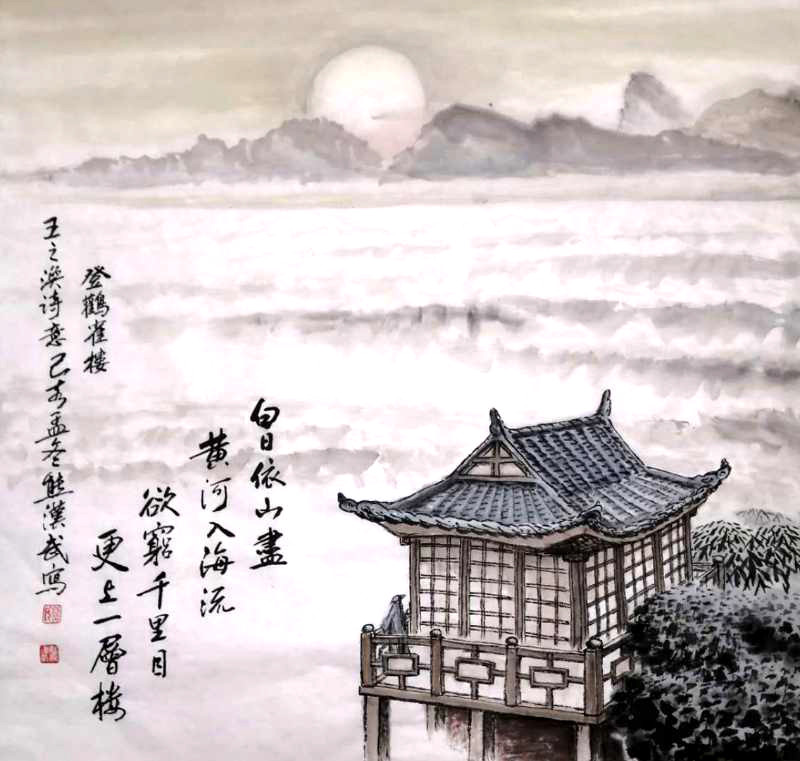 白日依山盡
黄河入海流
欲窮千里目
更上一層楼
登鸛雀楼
王之渙诗意己亥孟冬熊漢武寫